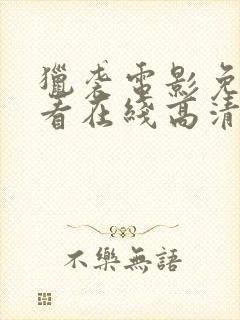 獵袭電影免
看在綫高清
不樂無語